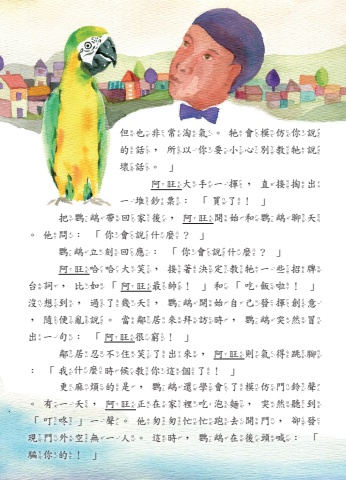 但也非常淘氣。牠會模仿你說
的話，所以你要小心別教牠說
壞話。」
阿旺大手一揮，直接掏出
一堆鈔票：「買了！」
把鸚鵡帶回家後，阿旺開始和鸚鵡聊天
。他問：「你會說什麼？」
鸚鵡立刻回應：「你會說什麼？」
阿旺哈哈大笑，接著決定教牠一些招牌
台詞，比如「阿旺最帥！」和「吃飯啦！」
沒想到，過了幾天，鸚鵡開始自己發揮創意
，隨便亂說。當鄰居來拜訪時，鸚鵡突然冒
出一句：「阿旺很窮！」
鄰居忍不住笑了出來，阿旺則氣得跳腳
：「我什麼時候教你這個了！」
更麻煩的是，鸚鵡還學會了模仿門鈴聲
。有一天，阿旺正在家裡吃泡麵，突然聽到
「叮咚」一聲。他匆匆忙忙跑去開門，卻發
現門外空無一人。這時，鸚鵡在後頭喊：「
騙你的！」